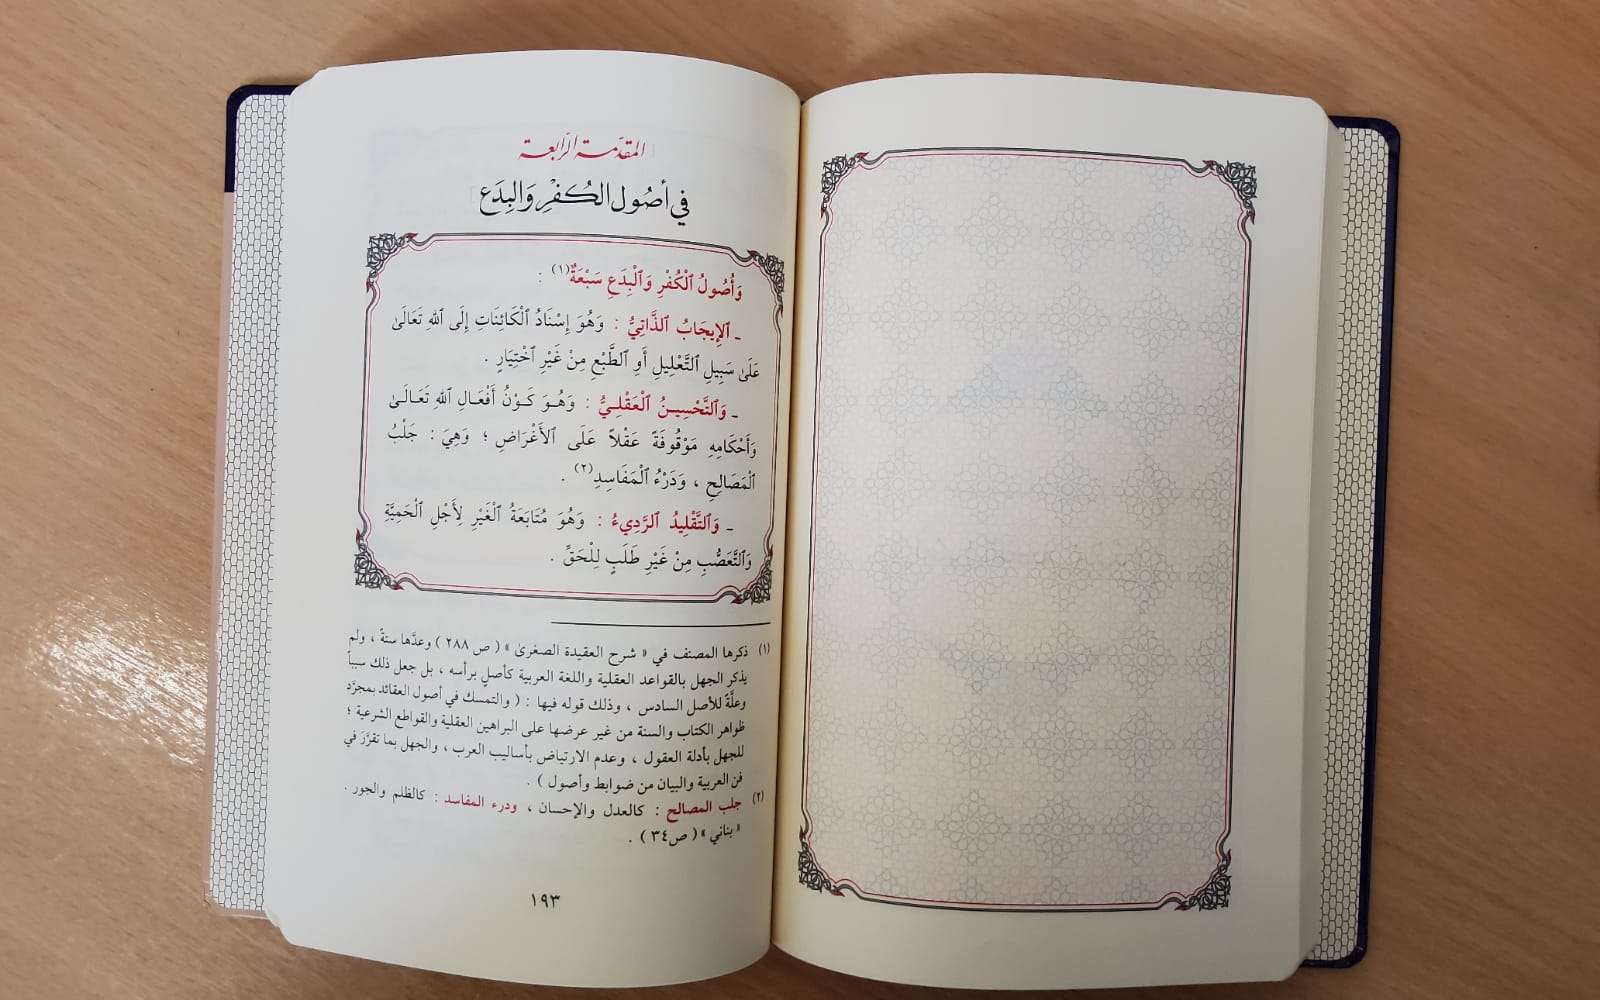 المقدّمة الرّابعة
في أصُول الكُفْرِ وَالبِدَع
وَأُصُولُ ٱلْكُفْرِ وَٱلْبِدَعِ سَبْعَةٌ(١) :
ـ ٱلإِيجَابُ ٱلذَّاتِيُّ : وَهُوَ إِسْنَادُ ٱلْكَائِنَاتِ إِلَى ٱللهِ تَعَالَىٰ
عَلَىٰ سَبِيلِ ٱلتَّعْلِيلِ أَوِ ٱلطَّبْعِ مِنْ غَيْرِ ٱخْتِيَارٍ .
ـ وَٱلتَّحْسِينُ ٱلْعَقْلِيُّ : وَهُوَ كَوْنُ أَفْعَالِ ٱللهِ تَعَالَىٰ
وَأَحْكَامِهِ مَوْقُوفَةً عَقْلاً عَلَى ٱلأَغْرَاضِ ؛ وَهِيَ : جَلْبُ
ٱلْمَصَالِحِ ، وَدَرْءُ ٱلْمَفَاسِدِ(٢) .
ـ وَٱلتَّقْلِيدُ ٱلرَّدِيءُ : وَهُوَ مُتَابَعَةُ ٱلْغَيْرِ لِأَجْلِ ٱلْحَمِيَّةِ
وَٱلتَّعَصُّبِ مِنْ غَيْرِ طَلَبٍ لِلْحَقِّ .
(١) ذكرها المصنف في « شرح العقيدة الصغرىٰ » ( ص ٢٨٨ ) وعدَّها ستةً ، ولم
يذكر الجهل بالقواعد العقلية واللغة العربية كأصلٍ برأسه ، بل جعل ذلك سبباً
وعلَّةً للأصل السادس ، وذلك قوله فيها : ( والتمسك في أصول العقائد بمجرَّد
ظواهر الكتاب والسنة من غير عرضها على البراهين العقلية والقواطع الشرعية ؛
للجهل بأدلة العقول ، وعدم الارتياض بأساليب العرب ، والجهل بما تقرَّرَ في
فن العربية والبيان من ضوابط وأصول ) .
(٢) جلب المصالح : كالعدل والإحسان ، ودرء المفاسد : كالظلم والجور .
« بناني » ( ص٣٤ ) .
١٩٣